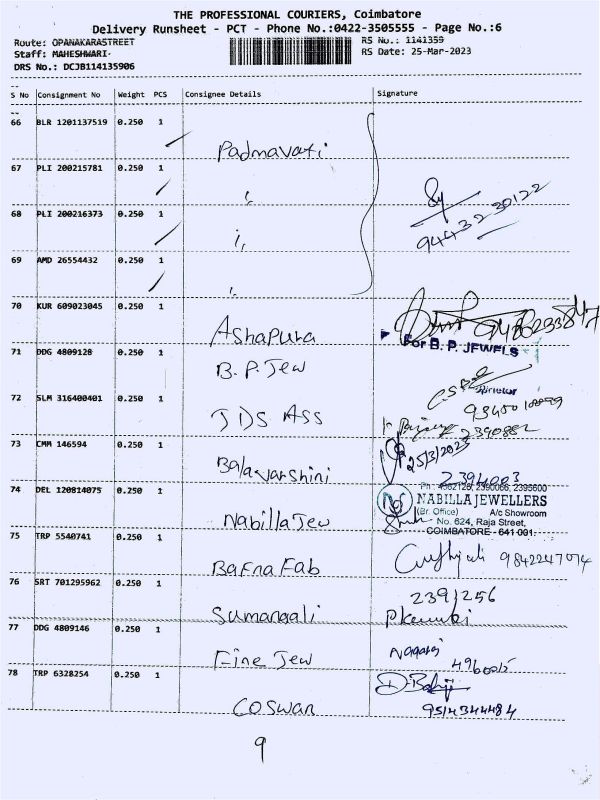 THE PROFESSIONAL COURIERS, Coimbatore
Delivery Runsheet - PCT - Phone No.:0422-3505555 - Page No.:6
Route: OPANAKARASTREET
RS No.: 1141359
Staff: MAHESHWARI.
RS Date: 25-Mar-2023
DRS No.: DCJB114135906
S No Consignment No Weight PCS Consignee Details Signature
66 BLR 1201137519 0.250 1 Padmavati
67 PLI 200215781 0.250 1 ,,
68 PLI 200216373 0.250 1 ,,
9443230122
69 AMD 26554432 0.250 1 ,,
70 KUR 609023045 0.250 1 Ashapura
For B. P. JEWELS
71 DDG 4809128 0.250 1 B.P. Jew
72 SLM 316400401 0.250 1 JDS Ass
2390882
73 CMM 146594 0.250 1 Balavarshini
25/3/2023
2394003
74 DEL 120814075 0.250 1 Nabilla Jew
Ph : 4362126, 2390066, 2395600
NABILLA JEWELLERS
(Br. Office) A/c Showroom
No. 624, Raja Street,
COIMBATORE - 641 001.
75 TRP 5540741 0.250 1 Bafna Fab
9842247074
76 SRT 701295962 0.250 1 Sumangali
2391256
77 DDG 4809146 0.250 1 Fine Jew
Nagaraj
4960015
78 TRP 6328254 0.250 1 Coswan
9514344484
9